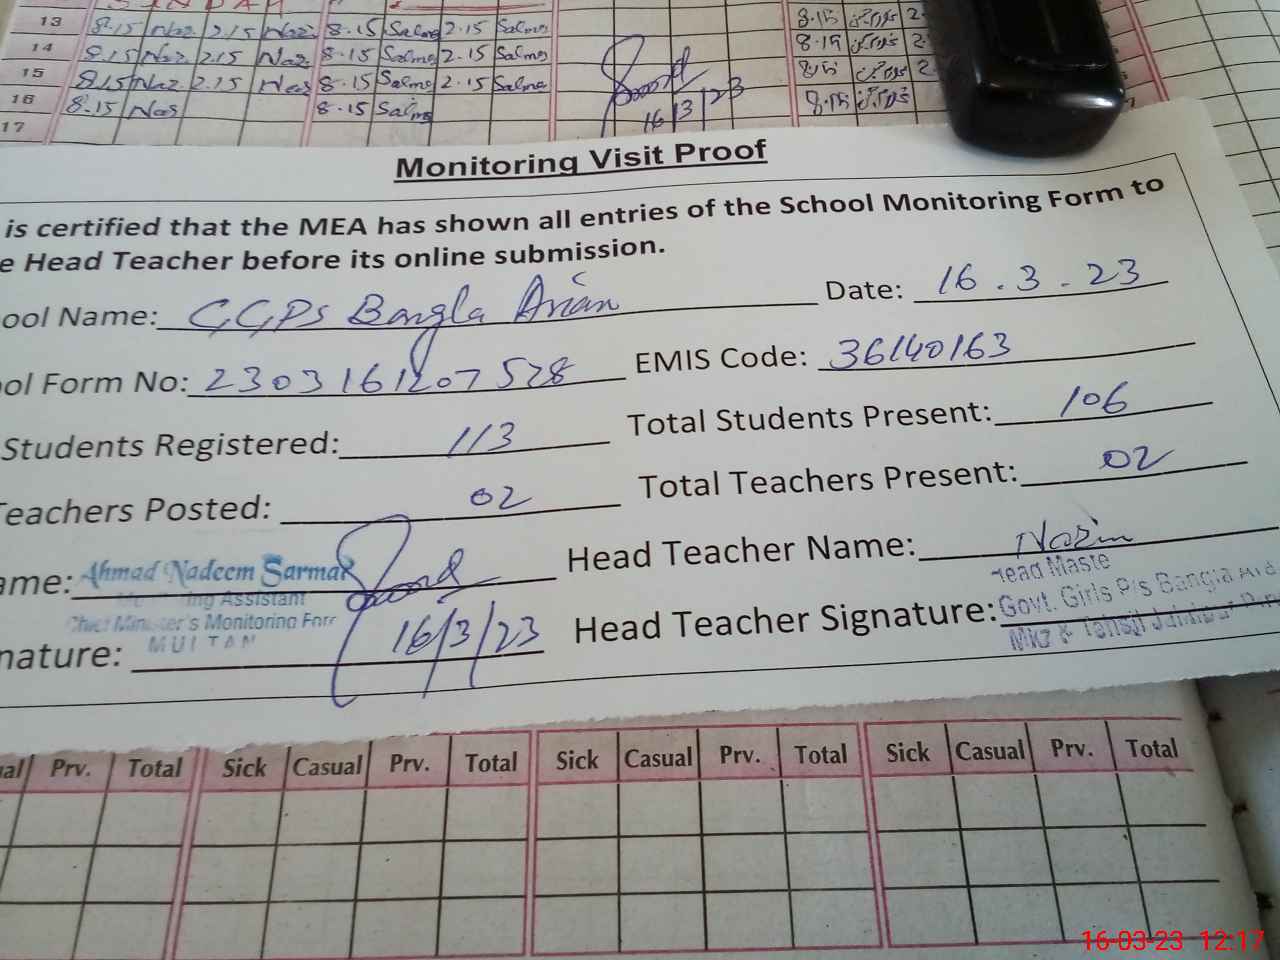 13 8.15 Naz 2.15 Naz 8.15 Salma 2.15 Salma 8.15
14 8.15 Naz 2.15 Naz 8.15 Salma 2.15 Salma 8.15
15 8.15 Naz 2.15 Naz 8.15 Salma 2.15 Salma 8.15
16 8.15 Naz 8.15 Salma 8.15
17
16/3/23
Monitoring Visit Proof
is certified that the MEA has shown all entries of the School Monitoring Form to
e Head Teacher before its online submission.
ool Name: GGPS Bangla Arian Date: 16.3.23
ol Form No: 2303161207528 EMIS Code: 36140163
Students Registered: 113 Total Students Present: 106
Teachers Posted: 02 Total Teachers Present: 02
ame: Ahmad Nadeem Sarmad Head Teacher Name: Nazim
Monitoring Assistant Head Maste
Chief Minister's Monitoring Forc
MULTAN
nature: 16/3/23 Head Teacher Signature: Govt. Girls P/s Bangla
al Prv. Total Sick Casual Prv. Total Sick Casual Prv. Total Sick Casual Prv. Total
16-03-23 12:17